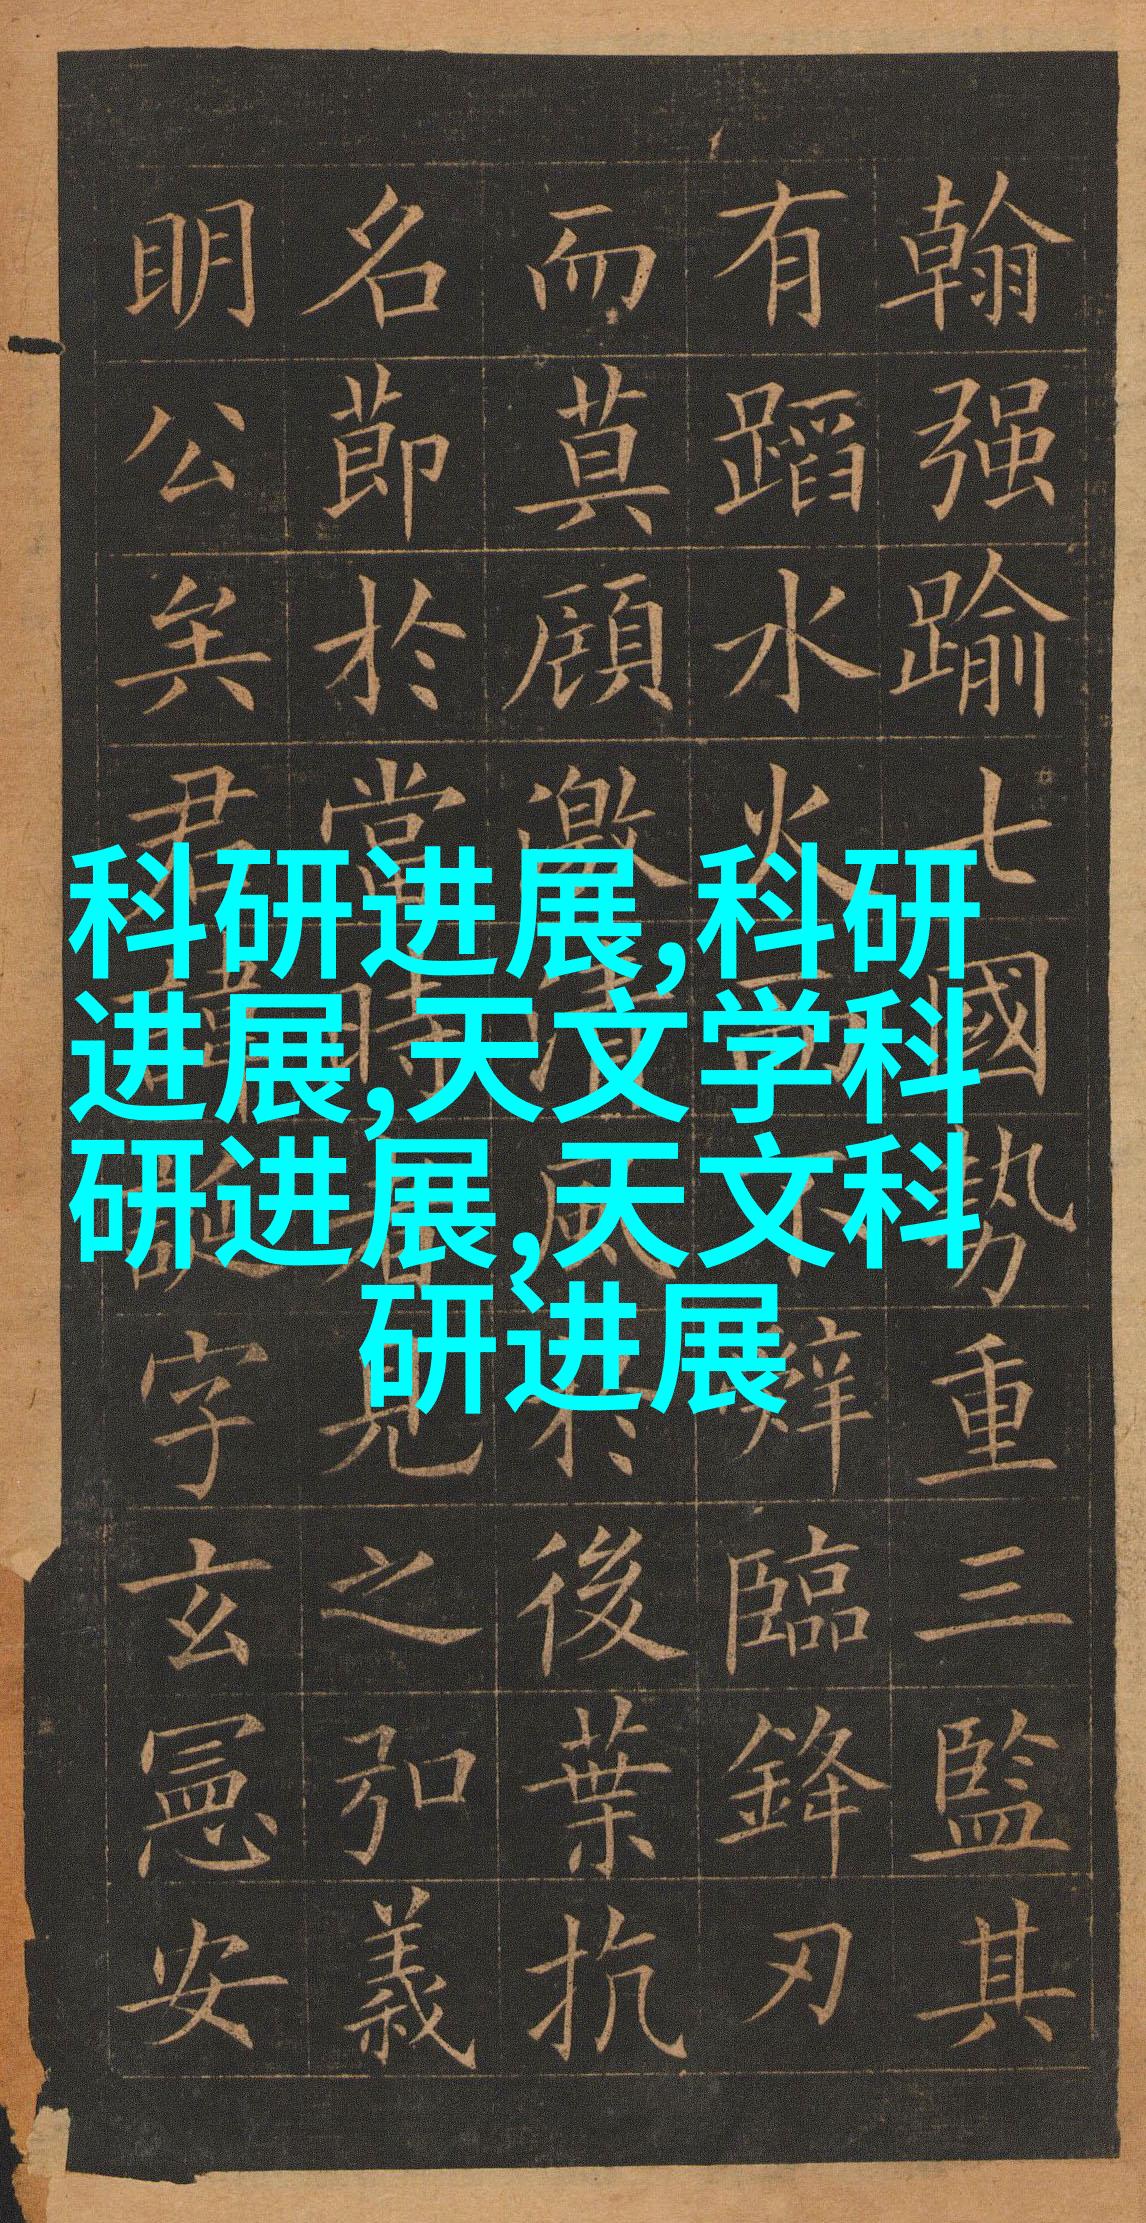 翰强踰七國勢重三監其
有蹈水火而不臨鋒刃
而莫顧激清風於後葉抗
名節於當時者見之弘義
明公矣君諱誕字玄憲安
科研进展,科研
进展,天文学科
研进展,天文科
研进展